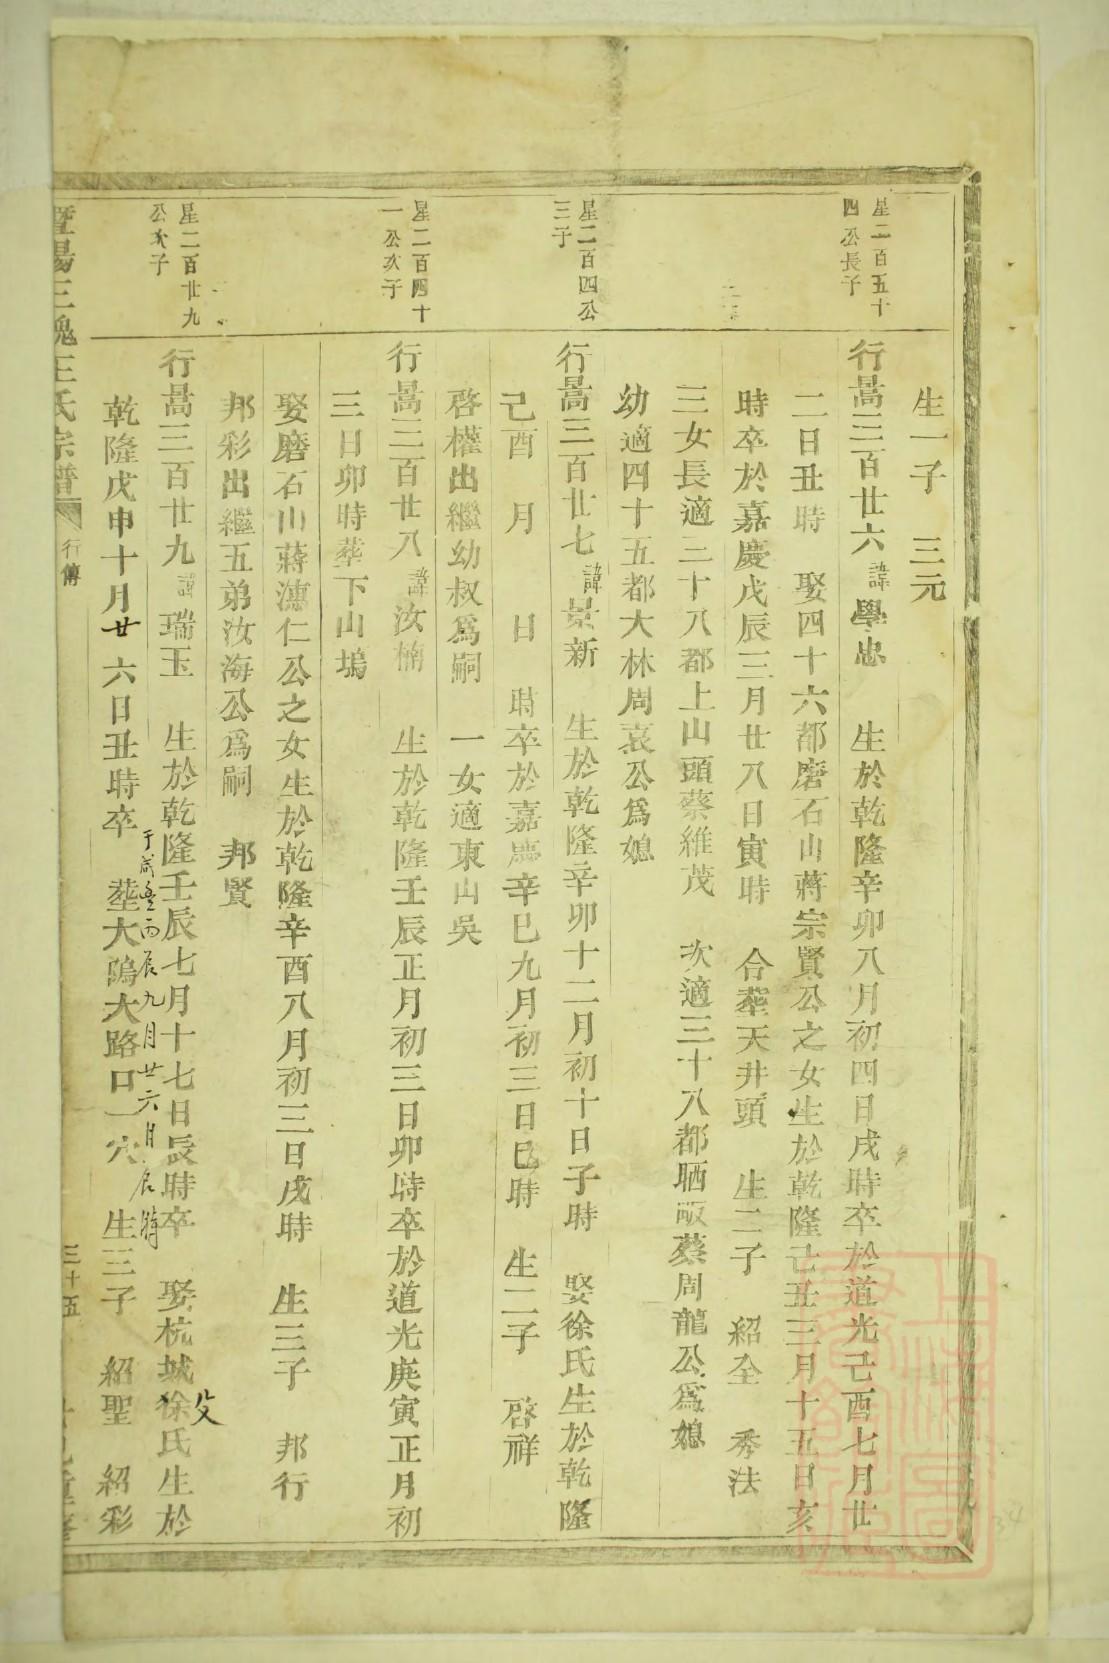 生一子　三元
星二百五十
四公長子
行暠三百廿六諱學忠　生於乾隆辛卯八月初四日戌時卒於道光己酉七月廿
二日丑時　娶四十六都磨石山蔣宗賢公之女生於乾隆己丑三月十五日亥
時卒於嘉慶戊辰三月廿八日寅時　合塟天井頭　生二子　紹全　秀法
三女長適三十八都上山頭蔡維茂　次適三十八都駟畈蔡周龍公爲媳
幼適四十五都大林周袁公爲媳
星二百四公
三子
行暠三百廿七諱景新　生於乾隆辛卯十二月初十日子時　娶徐氏生於乾隆
己酉　月　　日　時卒於嘉慶辛巳九月初三日巳時　生二子　啓祥
啓權出繼幼叔爲嗣　一女適東山吳
星二百四十
一公次子
行暠三百廿八諱汝楠　生於乾隆壬辰正月初三日卯時卒於道光庚寅正月初
三日卯時塟下山塢
娶磨石山蔣漙仁公之女生於乾隆辛酉八月初三日戌時　生三子　邦行
邦彩出繼五弟汝海公爲嗣　邦賢
星二百廿九
公次子
行暠三百廿九諱瑞玉　生於乾隆壬辰七月十七日辰時卒　娶杭城徐氏生於
于咸豐丙辰九月廿六日辰時
乾隆戊申十月廿六日丑時卒　塟大隖大路口一穴　生三子　紹聖　紹彩
暨陽三槐王氏宗譜　行傳　三十五